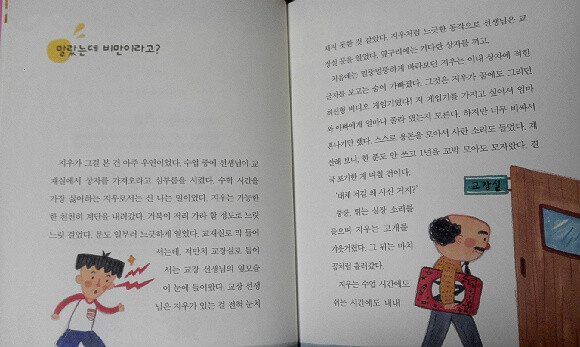 말랐는데 비만이라고?
지우가 그걸 본 건 아주 우연이었다. 수업 중에 선생님이 교
재실에서 상자를 가져오라고 심부름을 시켰다. 수학 시간을
가장 싫어하는 지우로서는 신 나는 일이었다. 지우는 가능한
한 천천히 계단을 내려갔다. 거북이 저리 가라 할 정도로 느릿
느릿 걸었다. 문도 일부러 느긋하게 열었다. 교재실로 막 들어
서는데, 저만치 교장실로 들어
서는 교장 선생님의 옆모습
이 눈에 들어왔다. 교장 선생
님은 지우가 있는 걸 전혀 눈치
채지 못한 것 같았다. 지우처럼 느긋한 동작으로 선생님은 교
장실 문을 열었다. 옆구리에는 커다란 상자를 끼고.
처음에는 멀뚱멀뚱하게 바라보던 지우는 이내 상자에 적힌
글자를 보고는 숨이 가빠졌다. 그것은 지우가 꿈에도 그리던
최신형 비디오 게임기였다! 저 게임기를 가지고 싶어서 엄마
와 아빠에게 얼마나 졸라 댔는지 모른다. 하지만 너무 비싸서
혼나기만 했다. 스스로 용돈을 모아서 사란 소리도 들었다. 계
산해 보니, 한 푼도 안 쓰고 1년을 꼬박 모아도 모자랐다. 결
국 포기한 게 며칠 전이다.
'대체 저걸 왜 사신 거지?'
쿵쿵, 뛰는 심장 소리를
들으며 지우는 고개를
갸웃거렸다. 그 뒤는 마치
꿈처럼 흘러갔다.
지우는 수업 시간에도
쉬는 시간에도 내내
교장실